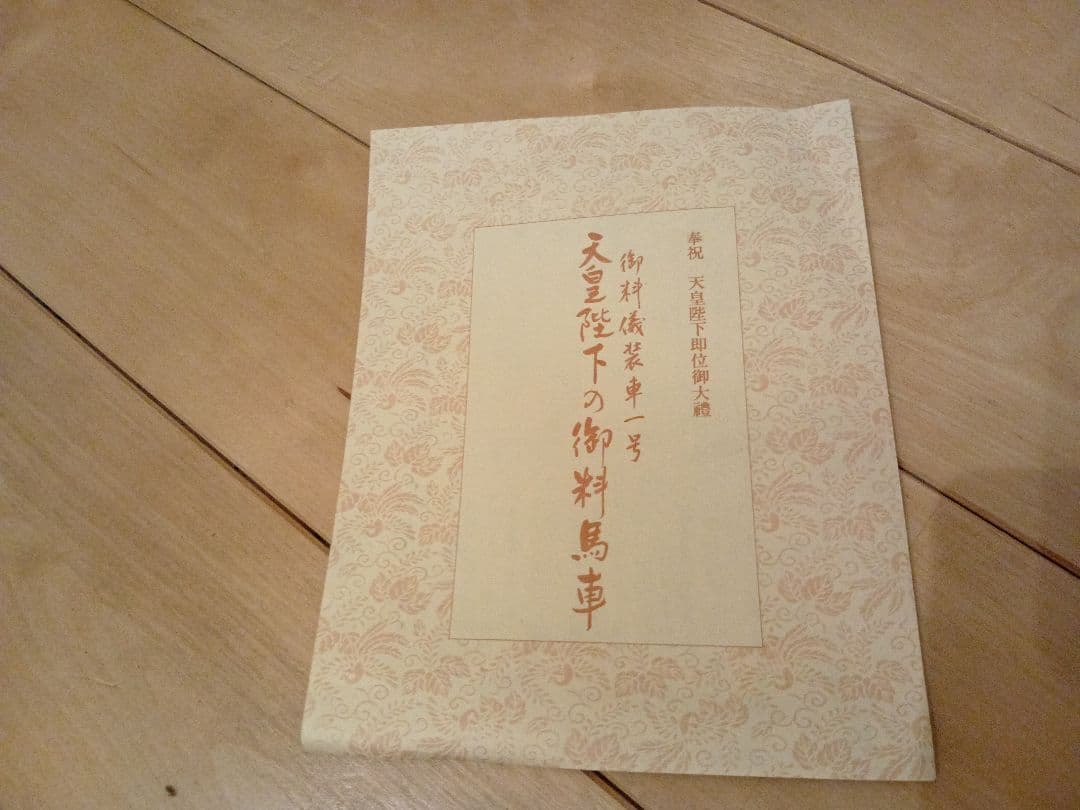 奉祝　天皇陛下即位御大禮
御料儀装車一号
天皇陛下の御料馬車